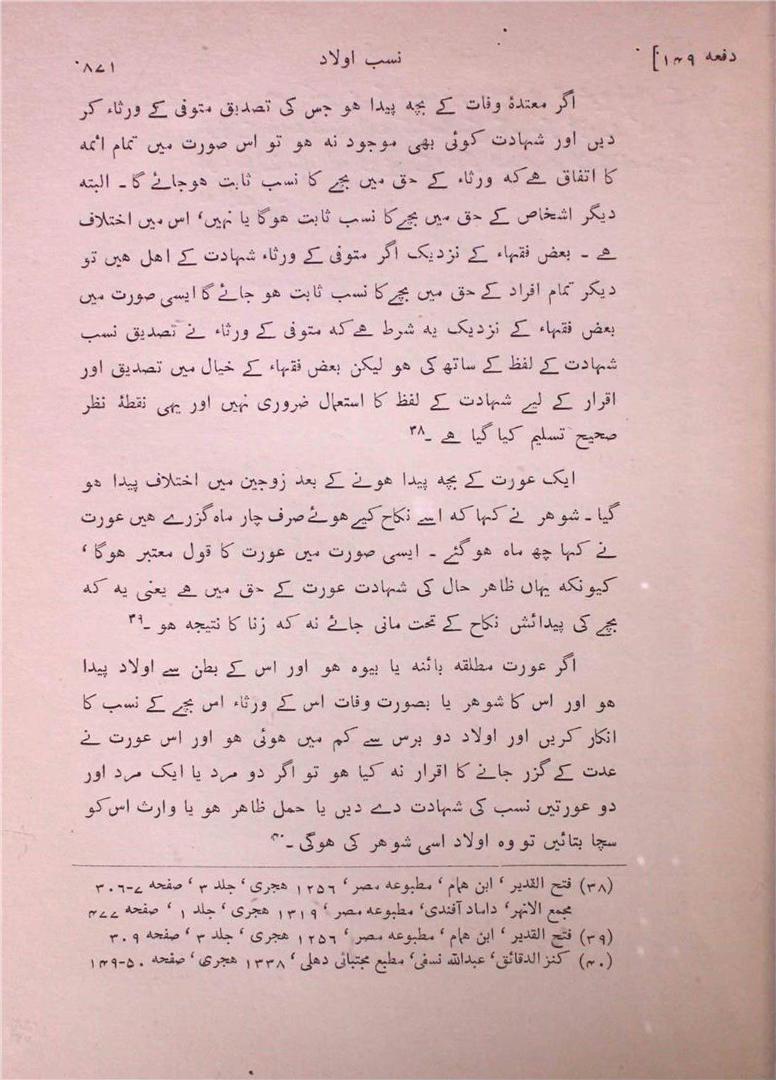 دفعہ ۱۴۹] نسب اولاد ۸۷۱
اگر معتدۂ وفات کے بچہ پیدا ہو جس کی تصدیق متوفی کے ورثاء کر
دیں اور شہادت کوئی بھی موجود نہ ہو تو اس صورت میں تمام ائمہ
کا اتفاق ہے کہ ورثاء کے حق میں بچے کا نسب ثابت ہوجائے گا۔ البتہ
دیگر اشخاص کے حق میں بچے کا نسب ثابت ہوگا یا نہیں، اس میں اختلاف
ہے ۔ بعض فقہاء کے نزدیک اگر متوفی کے ورثاء شہادت کے اہل ہیں تو
دیگر تمام افراد کے حق میں بچے کا نسب ثابت ہو جائے گا ایسی صورت میں
بعض فقہاء کے نزدیک یہ شرط ہے کہ متوفی کے ورثاء نے تصدیق نسب
شہادت کے لفظ کے ساتھ کی ہو لیکن بعض فقہاء کے خیال میں تصدیق اور
اقرار کے لیے شہادت کے لفظ کا استعمال ضروری نہیں اور یہی نقطۂ نظر
صحیح تسلیم کیا گیا ہے ۔۳۸
ایک عورت کے بچہ پیدا ہونے کے بعد زوجین میں اختلاف پیدا ہو
گیا ۔ شوہر نے کہا کہ اسے نکاح کیے ہوئے صرف چار ماہ گزرے ہیں عورت
نے کہا چھ ماہ ہوگئے ۔ ایسی صورت میں عورت کا قول معتبر ہوگا ،
کیونکہ یہاں ظاہر حال کی شہادت عورت کے حق میں ہے یعنی یہ کہ
بچے کی پیدائش نکاح کے تحت مانی جائے نہ کہ زنا کا نتیجہ ہو ۔۳۹
اگر عورت مطلقہ بائنہ یا بیوہ ہو اور اس کے بطن سے اولاد پیدا
ہو اور اس کا شوہر یا بصورت وفات اس کے ورثاء اس بچے کے نسب کا
انکار کریں اور اولاد دو برس سے کم میں ہوئی ہو اور اس عورت نے
عدت کے گزر جانے کا اقرار نہ کیا ہو تو اگر دو مرد یا ایک مرد اور
دو عورتیں نسب کی شہادت دے دیں یا حمل ظاہر ہو یا وارث اس کو
سچا بتائیں تو وہ اولاد اسی شوہر کی ہوگی ۔۴۰
(۳۸) فتح القدیر ، ابن ہمام ، مطبوعہ مصر ، ۱۲۵۶ ہجری ، جلد ۳ ، صفحہ ۷-۳۰۶
مجمع الانہر، داماد آفندی، مطبوعہ مصر ، ۱۳۱۹ ہجری ، جلد ۱ ، صفحہ ۴۷۷
(۳۹) فتح القدیر ، ابن ہمام ، مطبوعہ مصر ، ۱۲۵۶ ہجری ، جلد ۳ ، صفحہ ۳۰۹
(۴۰) کنز الدقائق، عبداللہ نسفی، مطبع مجتبائی دہلی ، ۱۳۳۸ ہجری ، صفحہ ۵۰-۱۴۹